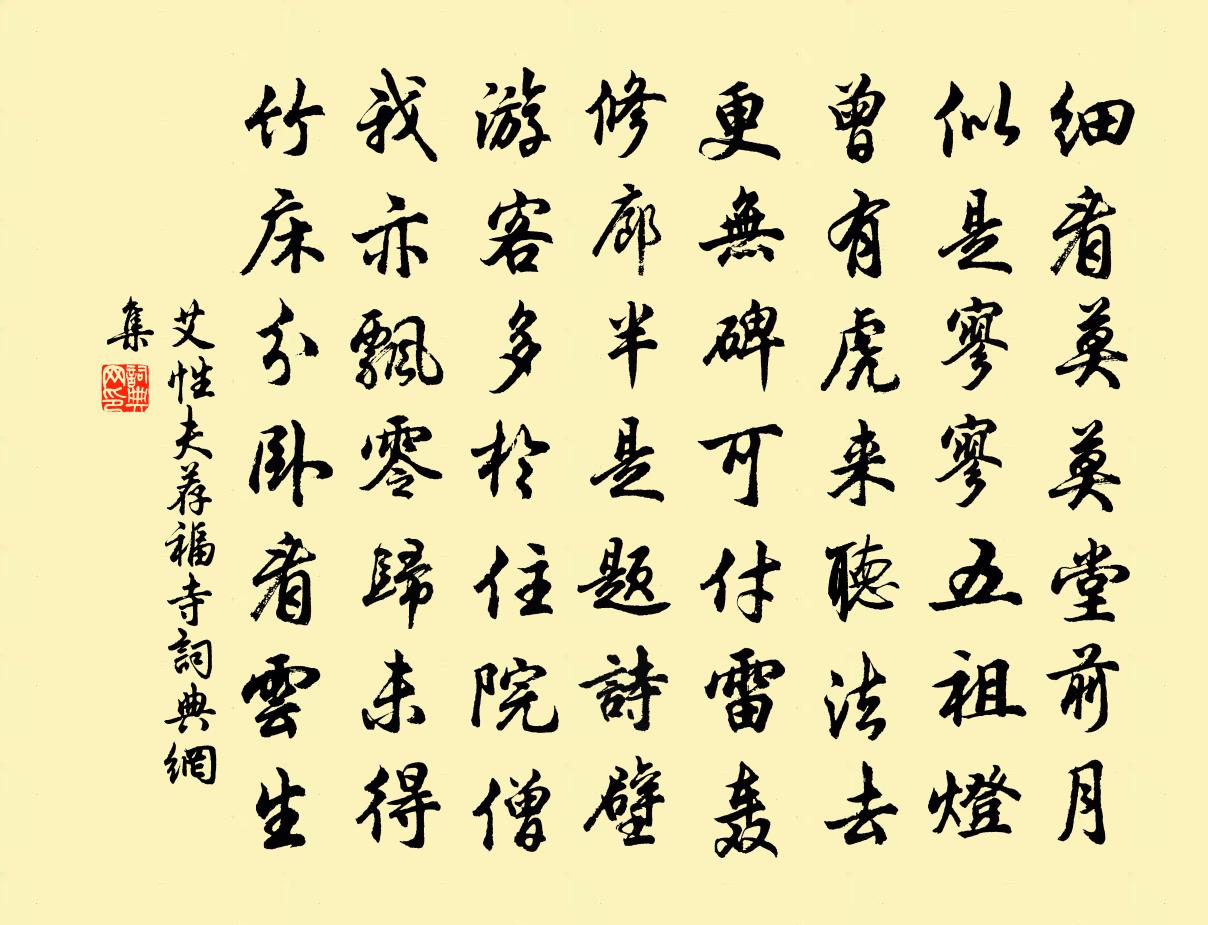 细看莫莫堂前月
似是寥寥五祖燈
曾有虎来聽法去
更無碑可付雷轰
修廊半是题詩壁
游客多於住院僧
我亦飄零歸未得
竹床分卧看雲生
艾性夫荐福寺詞典網
集
詞典
网印